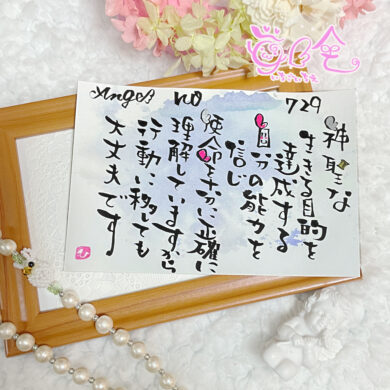 Angel no 729
神聖な
生きる目的を
達成する
自分の能力を
信じ
使命を十分に正確に
理解していますから
行動に移しても
大丈夫です